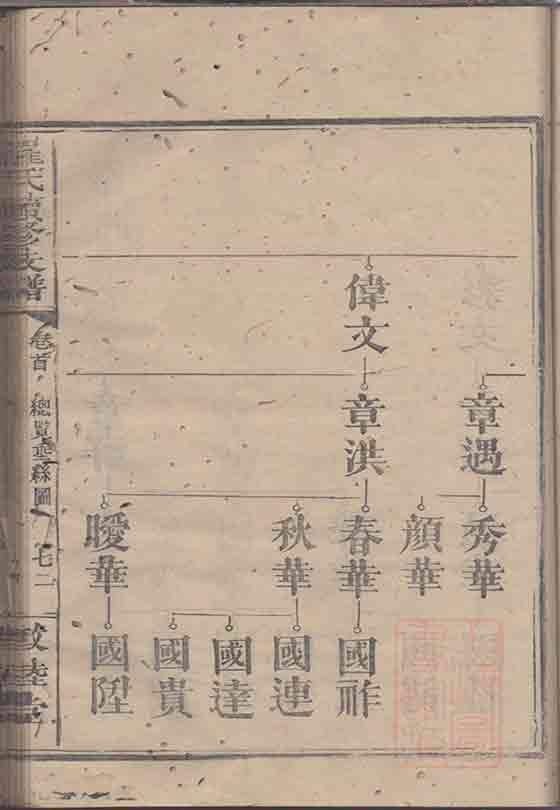 偉文
章遇
章洪
秀華
顔華
春華
秋華
曖華
國祚
國連
國達
國貴
國陞
羅氏續修支譜
卷首
總覽垂絲圖
七二
敦睦堂